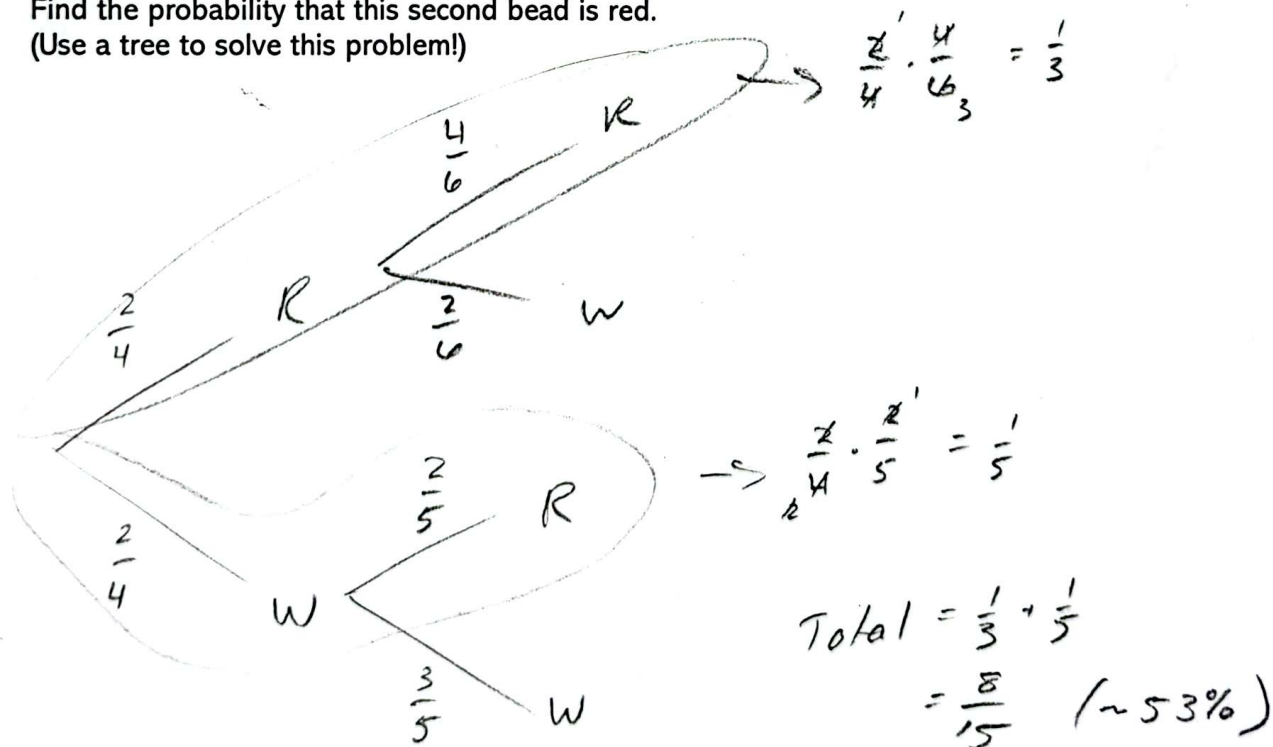 Find the probability that this second bead is red.
(Use a tree to solve this problem!)
2/4 · 4/6 3 = 1/3
4/6 R
2/4 R
2/6 W
2/4 · 2/5 = 1/5
2/5 R
2/4 W
3/5 W
Total = 1/3 + 1/5
= 8/15 (~53%)